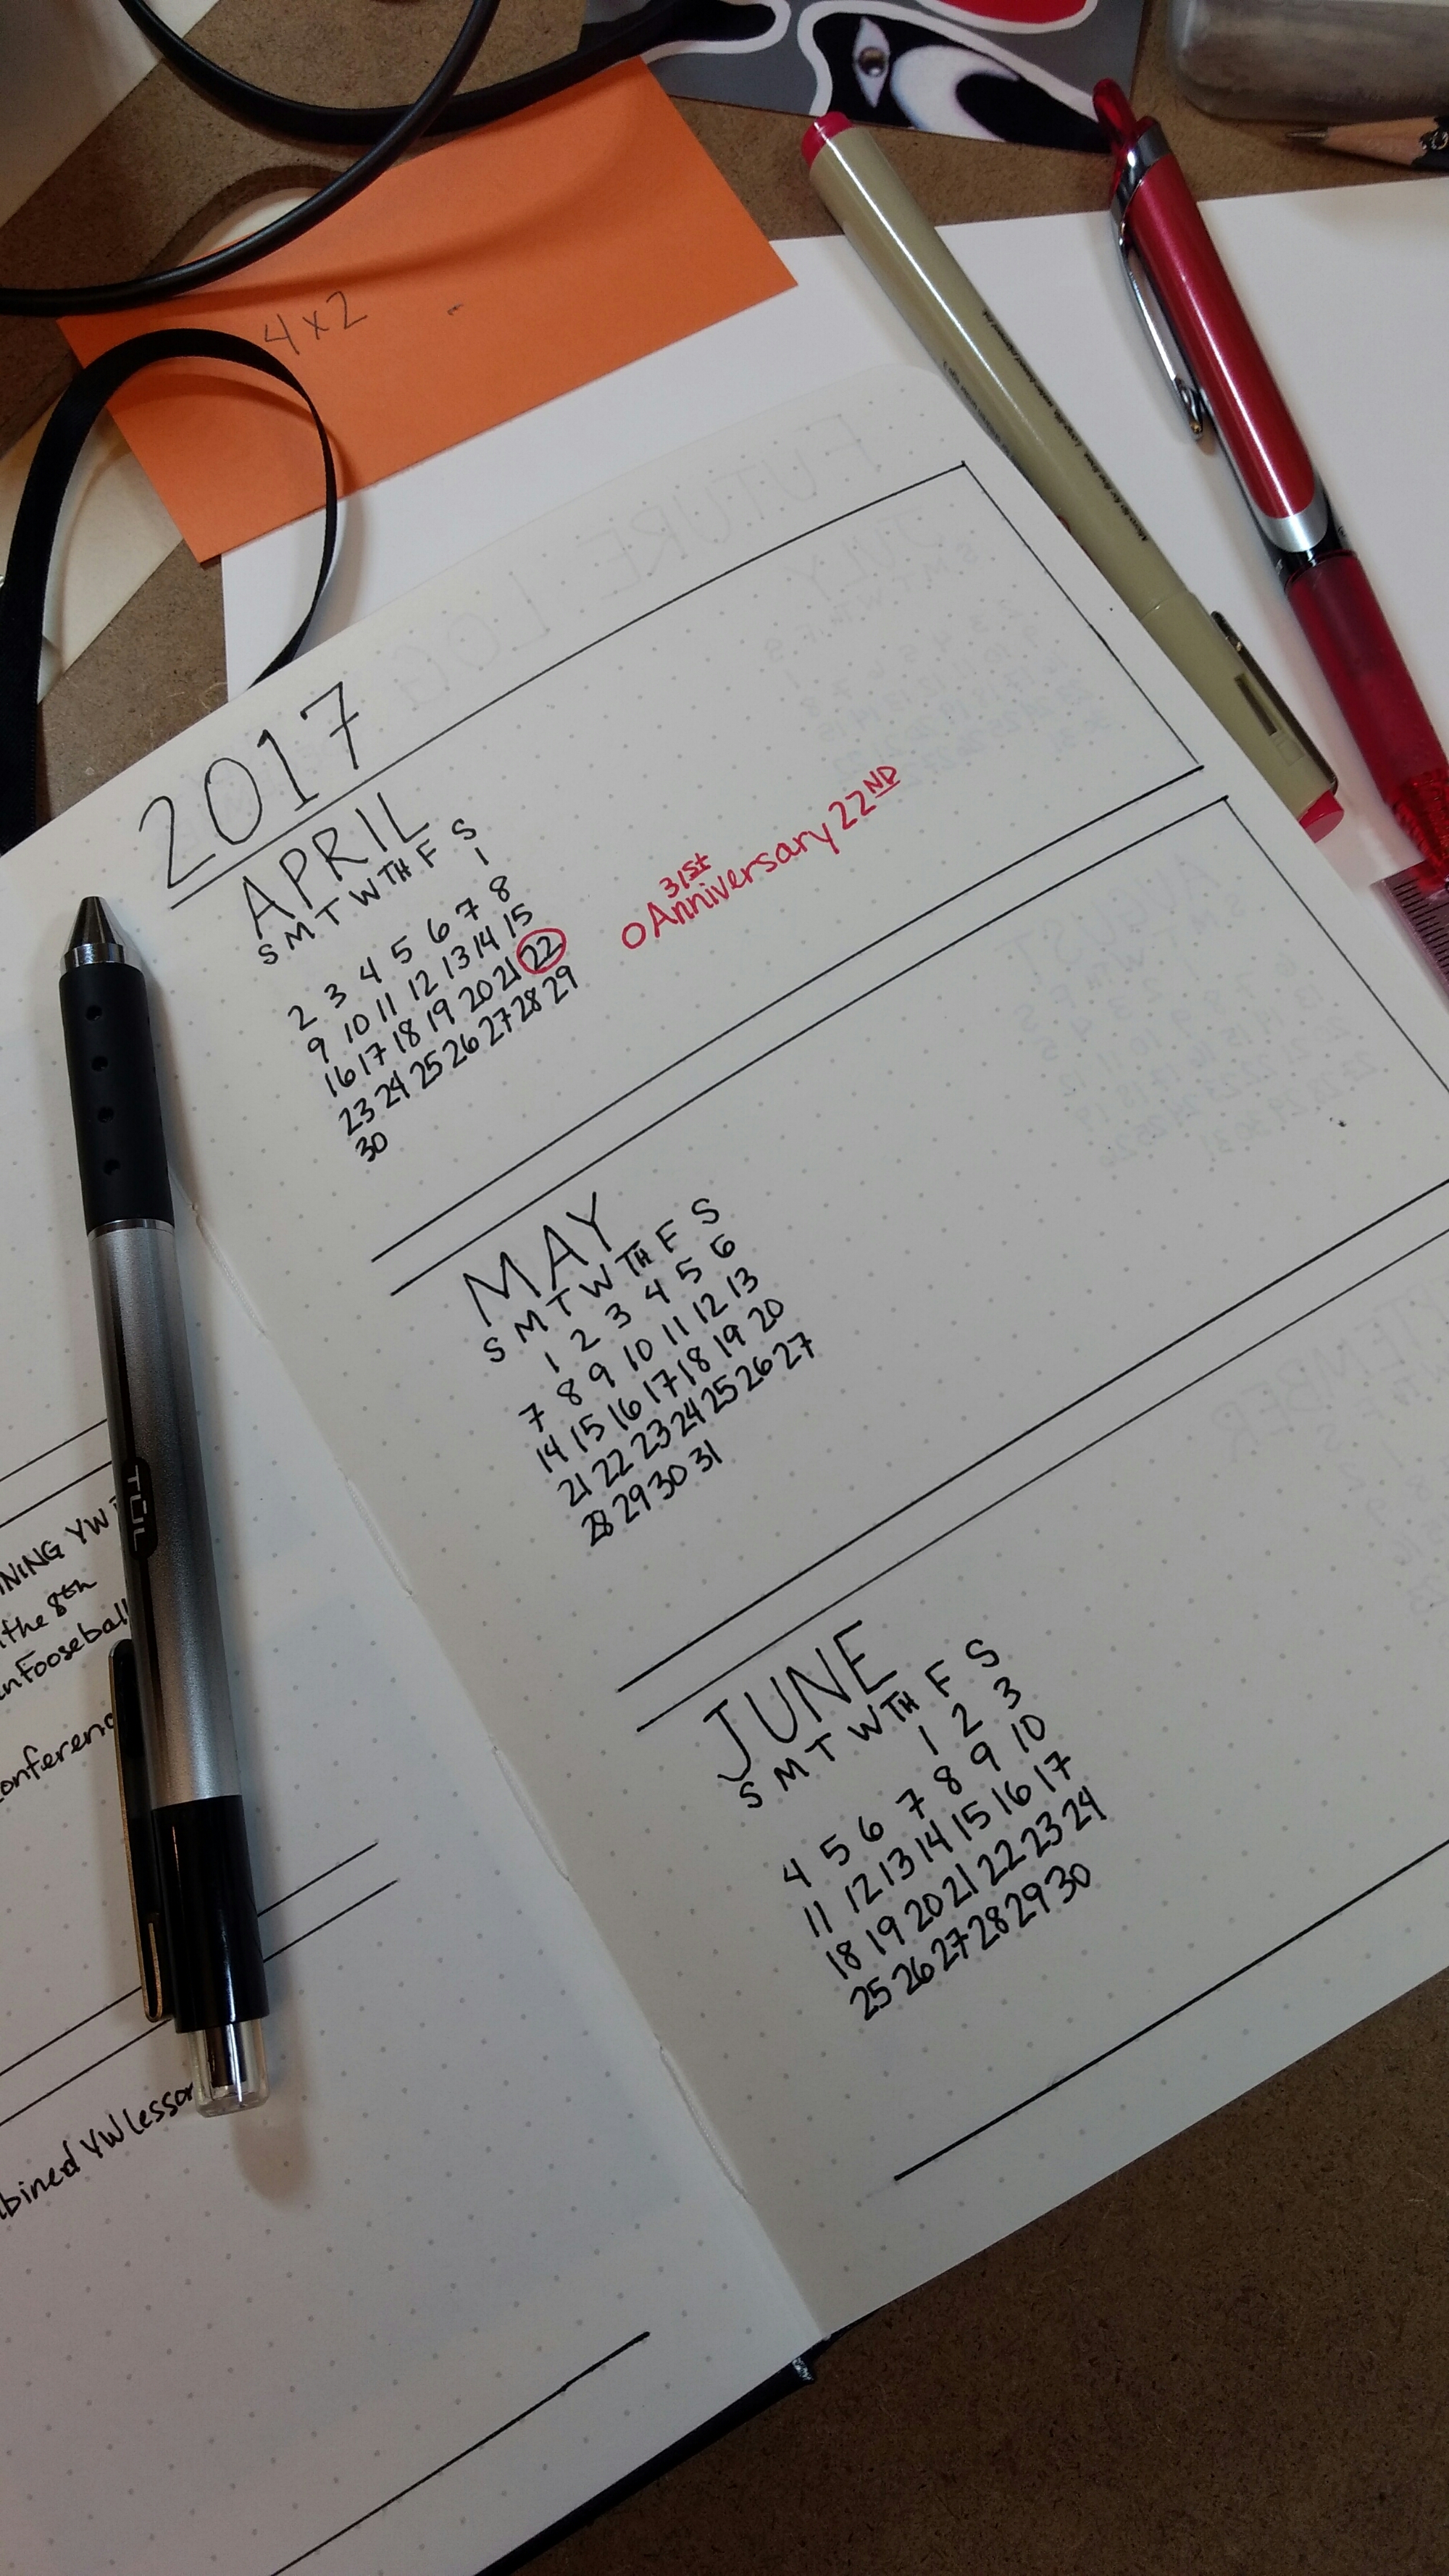 4x2
2017
APRIL
S M T W TH F S
1
2 3 4 5 6 7 8
9 10 11 12 13 14 15
16 17 18 19 20 21 22
23 24 25 26 27 28 29
30
31st
O Anniversary 22ND
MAY
S M T W TH F S
1 2 3 4 5 6
7 8 9 10 11 12 13
14 15 16 17 18 19 20
21 22 23 24 25 26 27
28 29 30 31
JUNE
S M T W TH F S
1 2 3
4 5 6 7 8 9 10
11 12 13 14 15 16 17
18 19 20 21 22 23 24
25 26 27 28 29 30
TUL
NING YW
the 8th
Fooseball
onferenc
bined YW lesson
FUTURE LOG
JULY
AUGUST
TEMBER